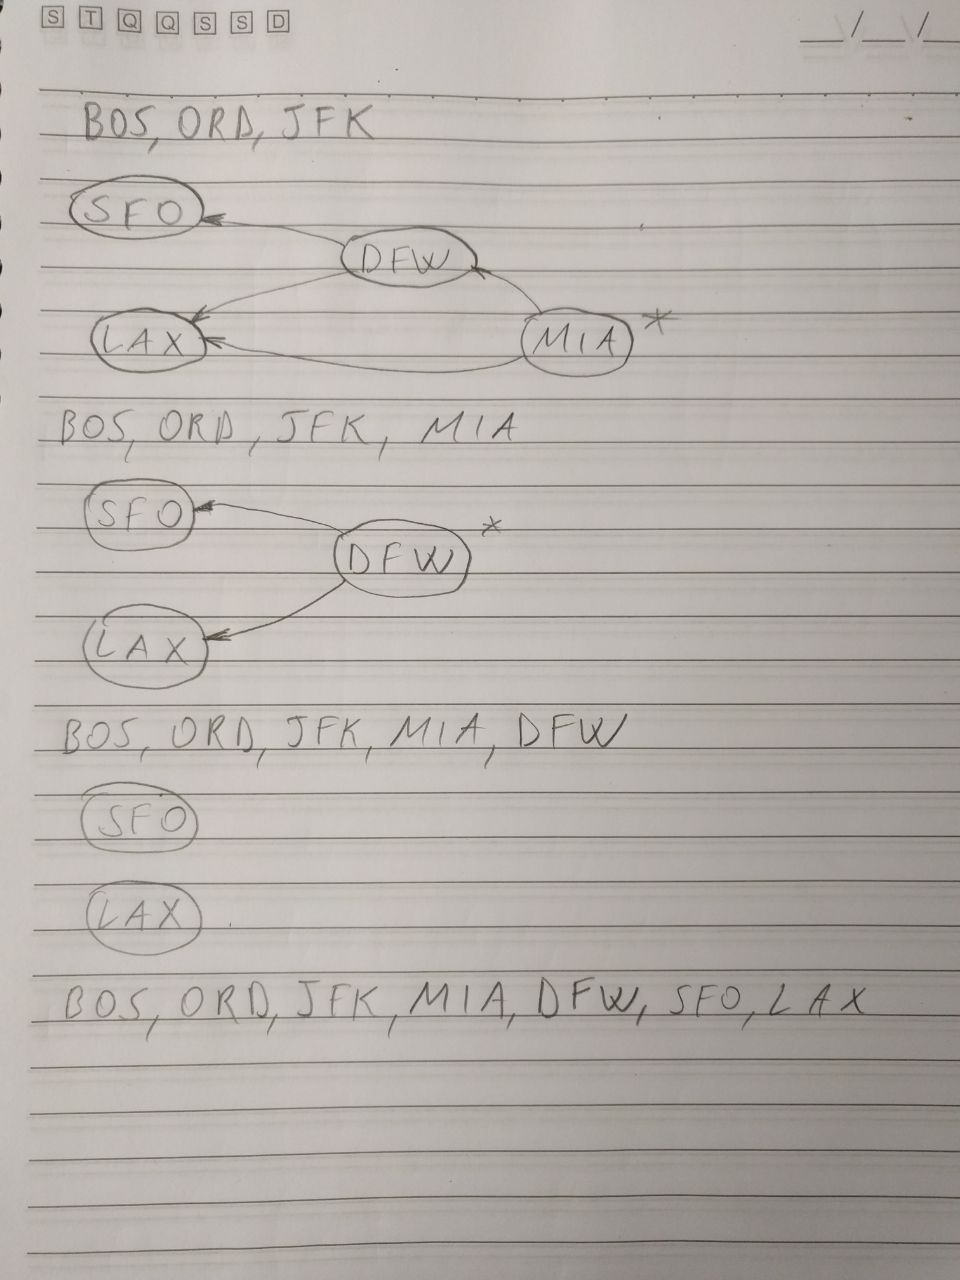 S T Q Q S S D
__/__/__
BOS, ORD, JFK
SFO
DFW
LAX
MIA *
BOS, ORD, JFK, MIA
SFO
DFW *
LAX
BOS, ORD, JFK, MIA, DFW
SFO
LAX
BOS, ORD, JFK, MIA, DFW, SFO, LAX